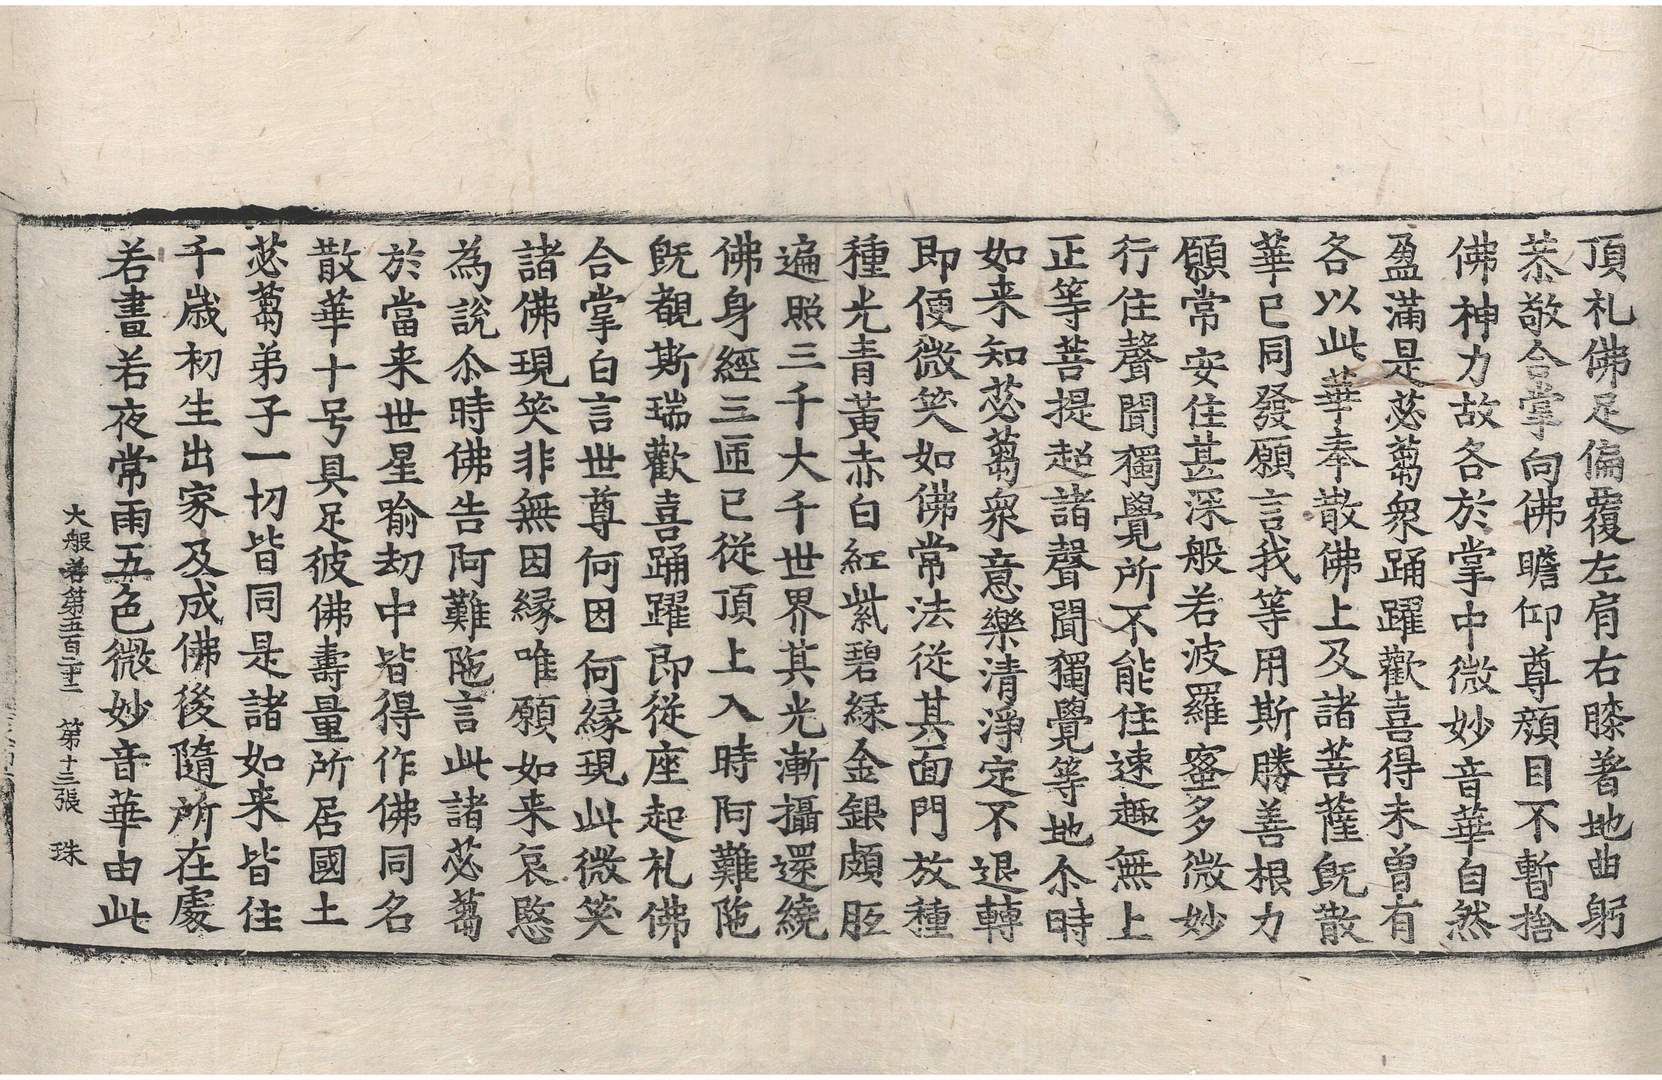 頂礼佛足偏覆左肩右膝著地曲躬
恭敬合掌向佛瞻仰尊顔目不暫捨
佛神力故各於掌中微妙音華自然
盈滿是苾蒭衆踊躍歡喜得未曾有
各以此華奉散佛上及諸菩薩既散
華已同發願言我等用斯勝善根力
願常安住甚深般若波羅蜜多微妙
行住聲聞獨覺所不能住速趣無上
正等菩提超諸聲聞獨覺等地尒時
如来知苾蒭衆意樂清淨定不退轉
即便微笑如佛常法従其面門放種
種光青黃赤白紅紫碧緑金銀頗胝
遍照三千大千世界其光漸攝還繞
佛身經三匝已從頂上入時阿難陁
既覩斯瑞歡喜踊躍即從座起礼佛
合掌白言世尊何因何緣現此微笑
諸佛現笑非無因緣唯願如来哀愍
為說尒時佛告阿難陁言此諸苾蒭
於當来世星喻劫中皆得作佛同名
散華十号具足彼佛壽量所居國土
苾蒭弟子一切皆同是諸如来皆住
千歲初生出家及成佛後隨所在處
若晝若夜常雨五色微妙音華由此
大般若第五百二十二　第十三張　珠